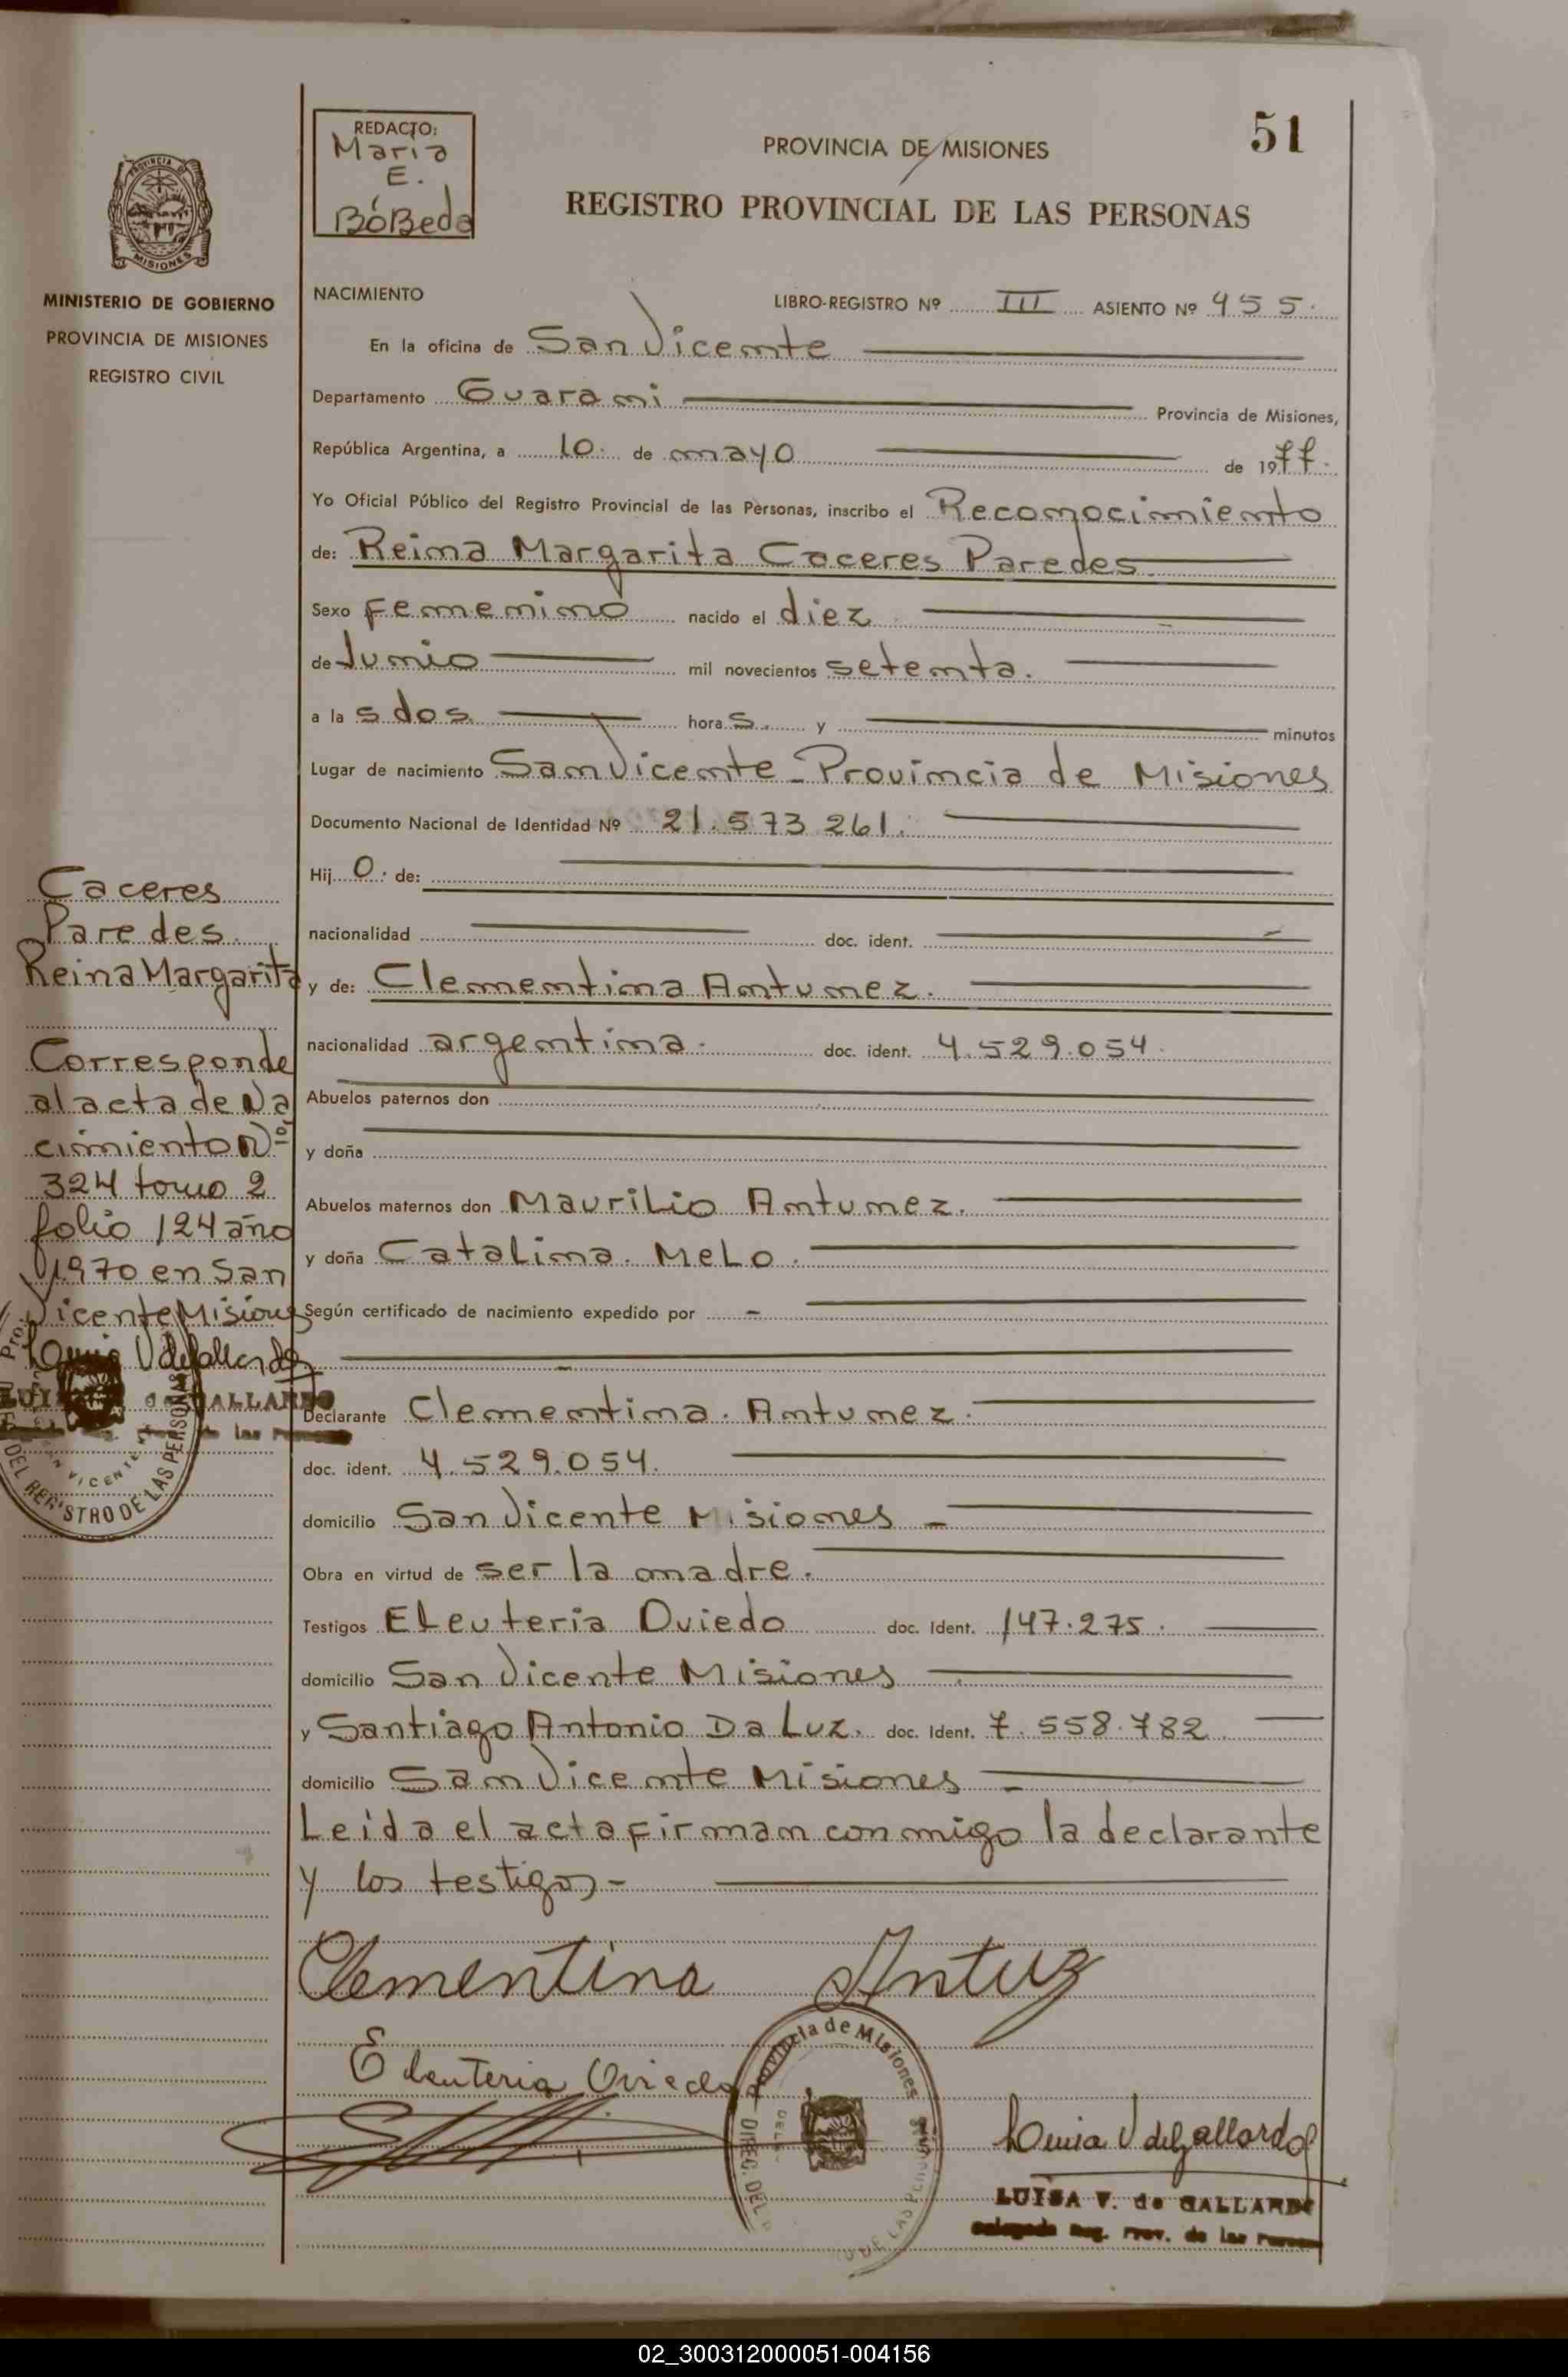 51
REDACTO:
Maria
E.
BóBeda
PROVINCIA DE MISIONES
REGISTRO PROVINCIAL DE LAS PERSONAS
PROVINCIA DE
MISIONES
MINISTERIO DE GOBIERNO
PROVINCIA DE MISIONES
REGISTRO CIVIL
NACIMIENTO LIBRO-REGISTRO Nº III ASIENTO Nº 455.
En la oficina de San Vicente
Departamento Guarani Provincia de Misiones,
República Argentina, a 10. de mayo de 1977.
Yo Oficial Público del Registro Provincial de las Personas, inscribo el Reconocimiento
de: Reina Margarita Caceres Paredes
Sexo femenino nacido el diez
de Junio mil novecientos setenta.
a la s dos hora s. y minutos
Lugar de nacimiento San Vicente - Provincia de Misiones
Documento Nacional de Identidad Nº 21.573 261.
Hij o. de:
nacionalidad doc. ident.
y de: Clementina Antunez.
nacionalidad argentina. doc. ident. 4.529.054.
Abuelos paternos don
y doña
Abuelos maternos don Maurilio Antunez.
y doña Catalina. Melo.
Según certificado de nacimiento expedido por -
Declarante Clementina. Antunez.
doc. ident. 4.529.054.
domicilio San Vicente Misiones -
Obra en virtud de ser la madre.
Testigos Eleuteria Oviedo doc. Ident. 147.275.
domicilio San Vicente Misiones
y Santiago Antonio Da Luz. doc. Ident. 7.558.782.
domicilio San Vicente Misiones -
Leida el acta firman conmigo la declarante
y los testigos -
Clementina Antuz
Eleuteria Oviedo
Provincia de Misiones
DIREC. DEL
DE LAS
Luisa V de Gallardo
LUISA V. de GALLARDO
Delegada Reg. Prov. de las Personas
Caceres
Paredes.
Reina Margarita
Corresponde
al acta de Na
cimiento Nº
324 tomo 2
folio 124 año
1970 en San
Vicente Misiones
Luisa V de Gallardo
LUISA V. de GALLARDO
de las Personas
DEL REGISTRO DE LAS PERSONAS
SAN VICENTE
02_300312000051-004156